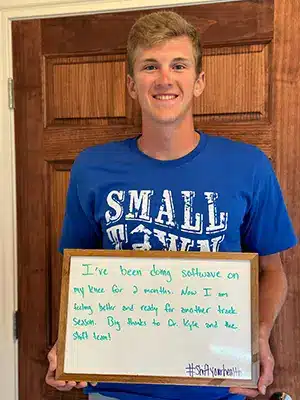 SMALL
TOWN
I've been doing softwave on
my knee for 2 months. Now I am
feeling better and ready for another track
season. Big thanks to Dr. Kyle and the
Shift team!
#Shiftyourhealth